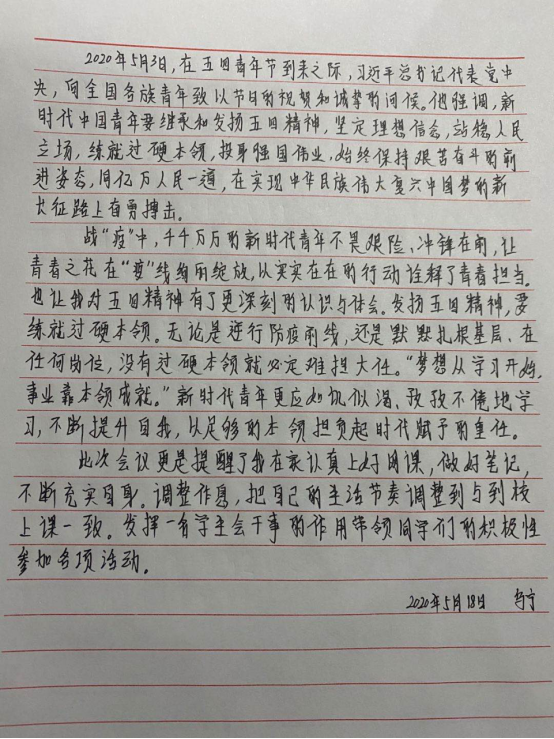 2020年5月3日，在五四青年节到来之际，习近平总书记代表党中
央，向全国各族青年致以节日的祝贺和诚挚的问候。他强调，新
时代中国青年要继承和发扬五四精神，坚定理想信念，站稳人民
立场，练就过硬本领，投身强国伟业，始终保持艰苦奋斗的前
进姿态，同亿万人民一道，在实现中华民族伟大复兴中国梦的新
长征路上奋勇搏击。
战“疫”中，千千万万的新时代青年不畏艰险、冲锋在前，让
青春之花在“疫”线绚丽绽放，以实实在在的行动诠释了青春担当。
也让我对五四精神有了更深刻的认识与体会。发扬五四精神，要
练就过硬本领。无论是逆行防疫前线，还是默默扎根基层、在
任何岗位，没有过硬本领就必定难担大任。“梦想从学习开始，
事业靠本领成就。”新时代青年更应如饥似渴、孜孜不倦地学
习，不断提升自我，以足够的本领担负起时代赋予的重任。
此次会议更是提醒了我在家认真上好网课，做好笔记，
不断充实自身。调整作息，把自己的生活节奏调整到与到校
上课一致。发挥一名学生会干事的作用带领同学们的积极性
参加各项活动。
2020年5月18日